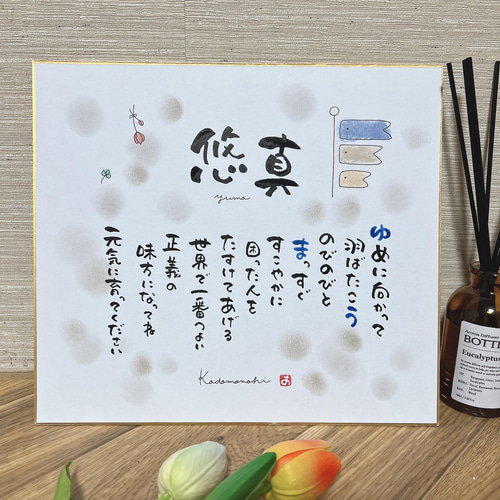 悠真
yuma
ゆめに向かって
羽ばたこう
のびのびと
まっすぐ
すこやかに
困った人を
たすけてあげる
世界で一番つよい
正義の
味方になってね
元気に育ってください
Kadomonohi
Aroma Diffuser
BOTT
Eucalyptu